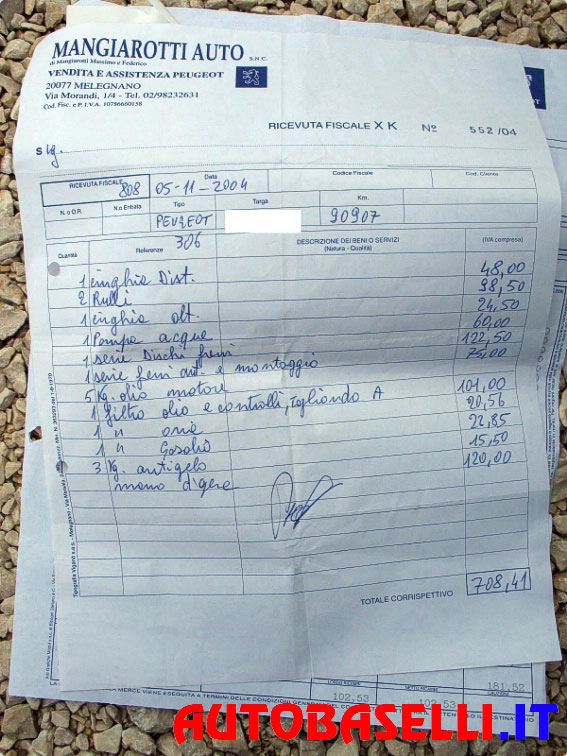 MANGIAROTTI AUTO S.N.C.
di Mangiarotti Massimo e Federico
VENDITA E ASSISTENZA PEUGEOT
20077 MELEGNANO
Via Morandi, 1/4 - Tel. 02/98232631
Cod. Fisc. e P. I.V.A. 10786660158
PEUGEOT
RICEVUTA FISCALE X K Nº 552/04
Sig.
RICEVUTA FISCALE 808
Data 05-11-2004
Codice Fiscale
Cod. C/vendita
N. o O.R.
N. o Entrata
Tipo PEUGEOT
Targa
Km. 90907
306
Quantità Referenze DESCRIZIONE DEI BENI O SERVIZI (IVA compresa)
(Natura - Qualità)
1 cinghia Dist. 48,00
2 Rulli 98,50
1 cinghia alt. 24,50
1 Pompa acque 60,00
1 serie Dischi freni 122,50
1 serie freni ant e montaggio 75,00
5 Kg. olio motore
1 filtro olio e controlli, Tagliando A 101,00
1 " aria 20,56
1 " Gasolio 22,85
3 Kg. antigelo 15,50
mano d'opera 120,00
TOTALE CORRISPETTIVO 708,41
181,52
102,53 102,53
AUTOBASELLI.IT